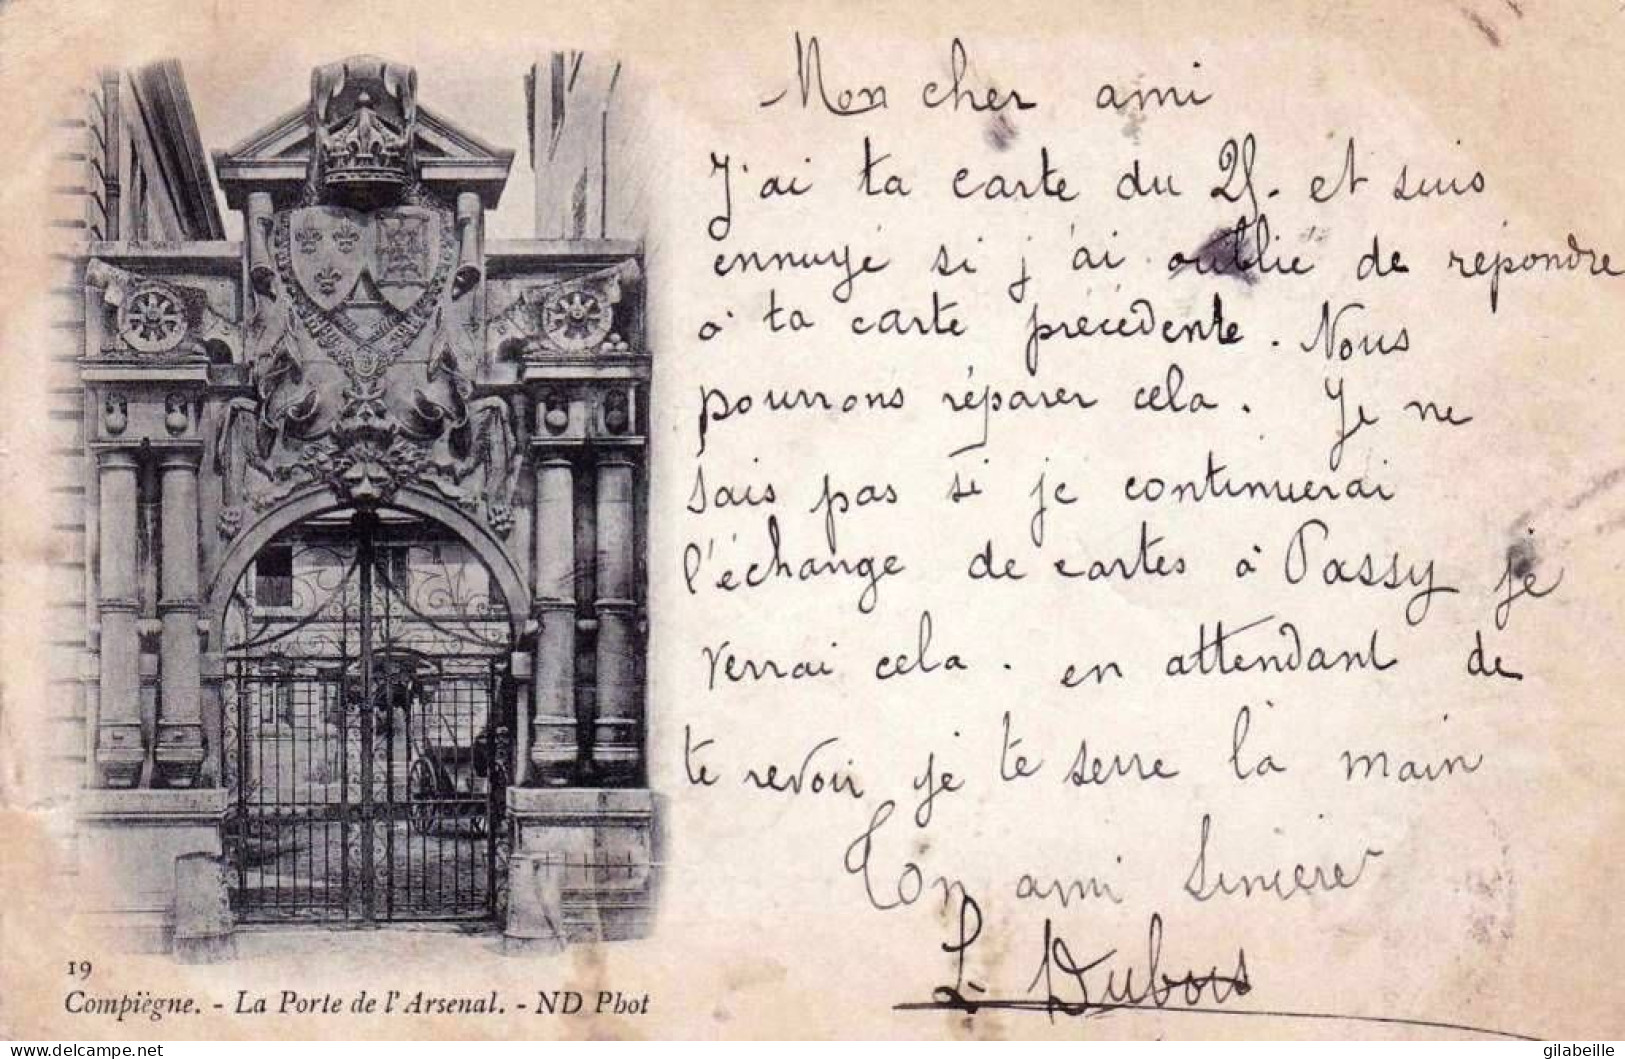 Mon cher ami
J'ai ta carte du 25. et suis
ennuyé si j'ai oublié de répondre
à ta carte précédente. Nous
pourrons réparer cela. Je ne
sais pas si je continuerai
l'échange de cartes à Passy je
verrai cela. en attendant de
te revoir je te serre la main
Ton ami sincère
L. Dubois
19
Compiègne. - La Porte de l'Arsenal. - ND Phot
delcampe.net
gilabeille